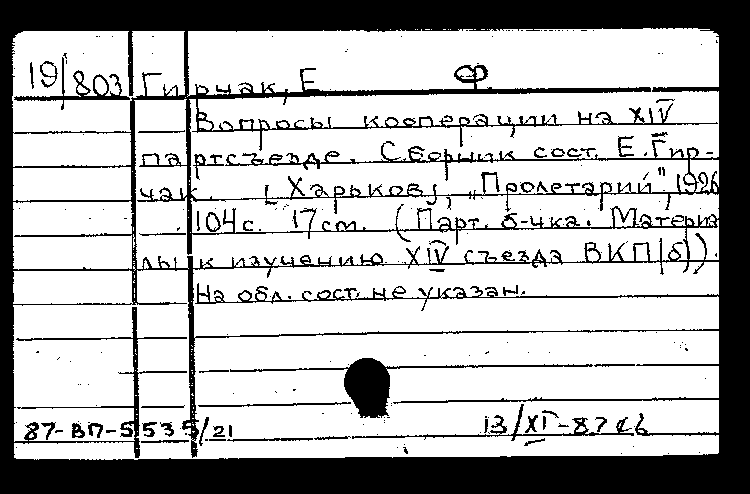 19/803 Гирчак, Е Ф.
Вопросы кооперации на XIV
партсъезде. Сборник сост. Е. Гир-
чак. [Харьков], „Пролетарий", 1926
104 с. 17 см. (Парт. б-чка. Материа
лы к изучению XIV съезда ВКП(б)).
На обл. сост. не указан.
87-ВП-5535/21 13/XI-87